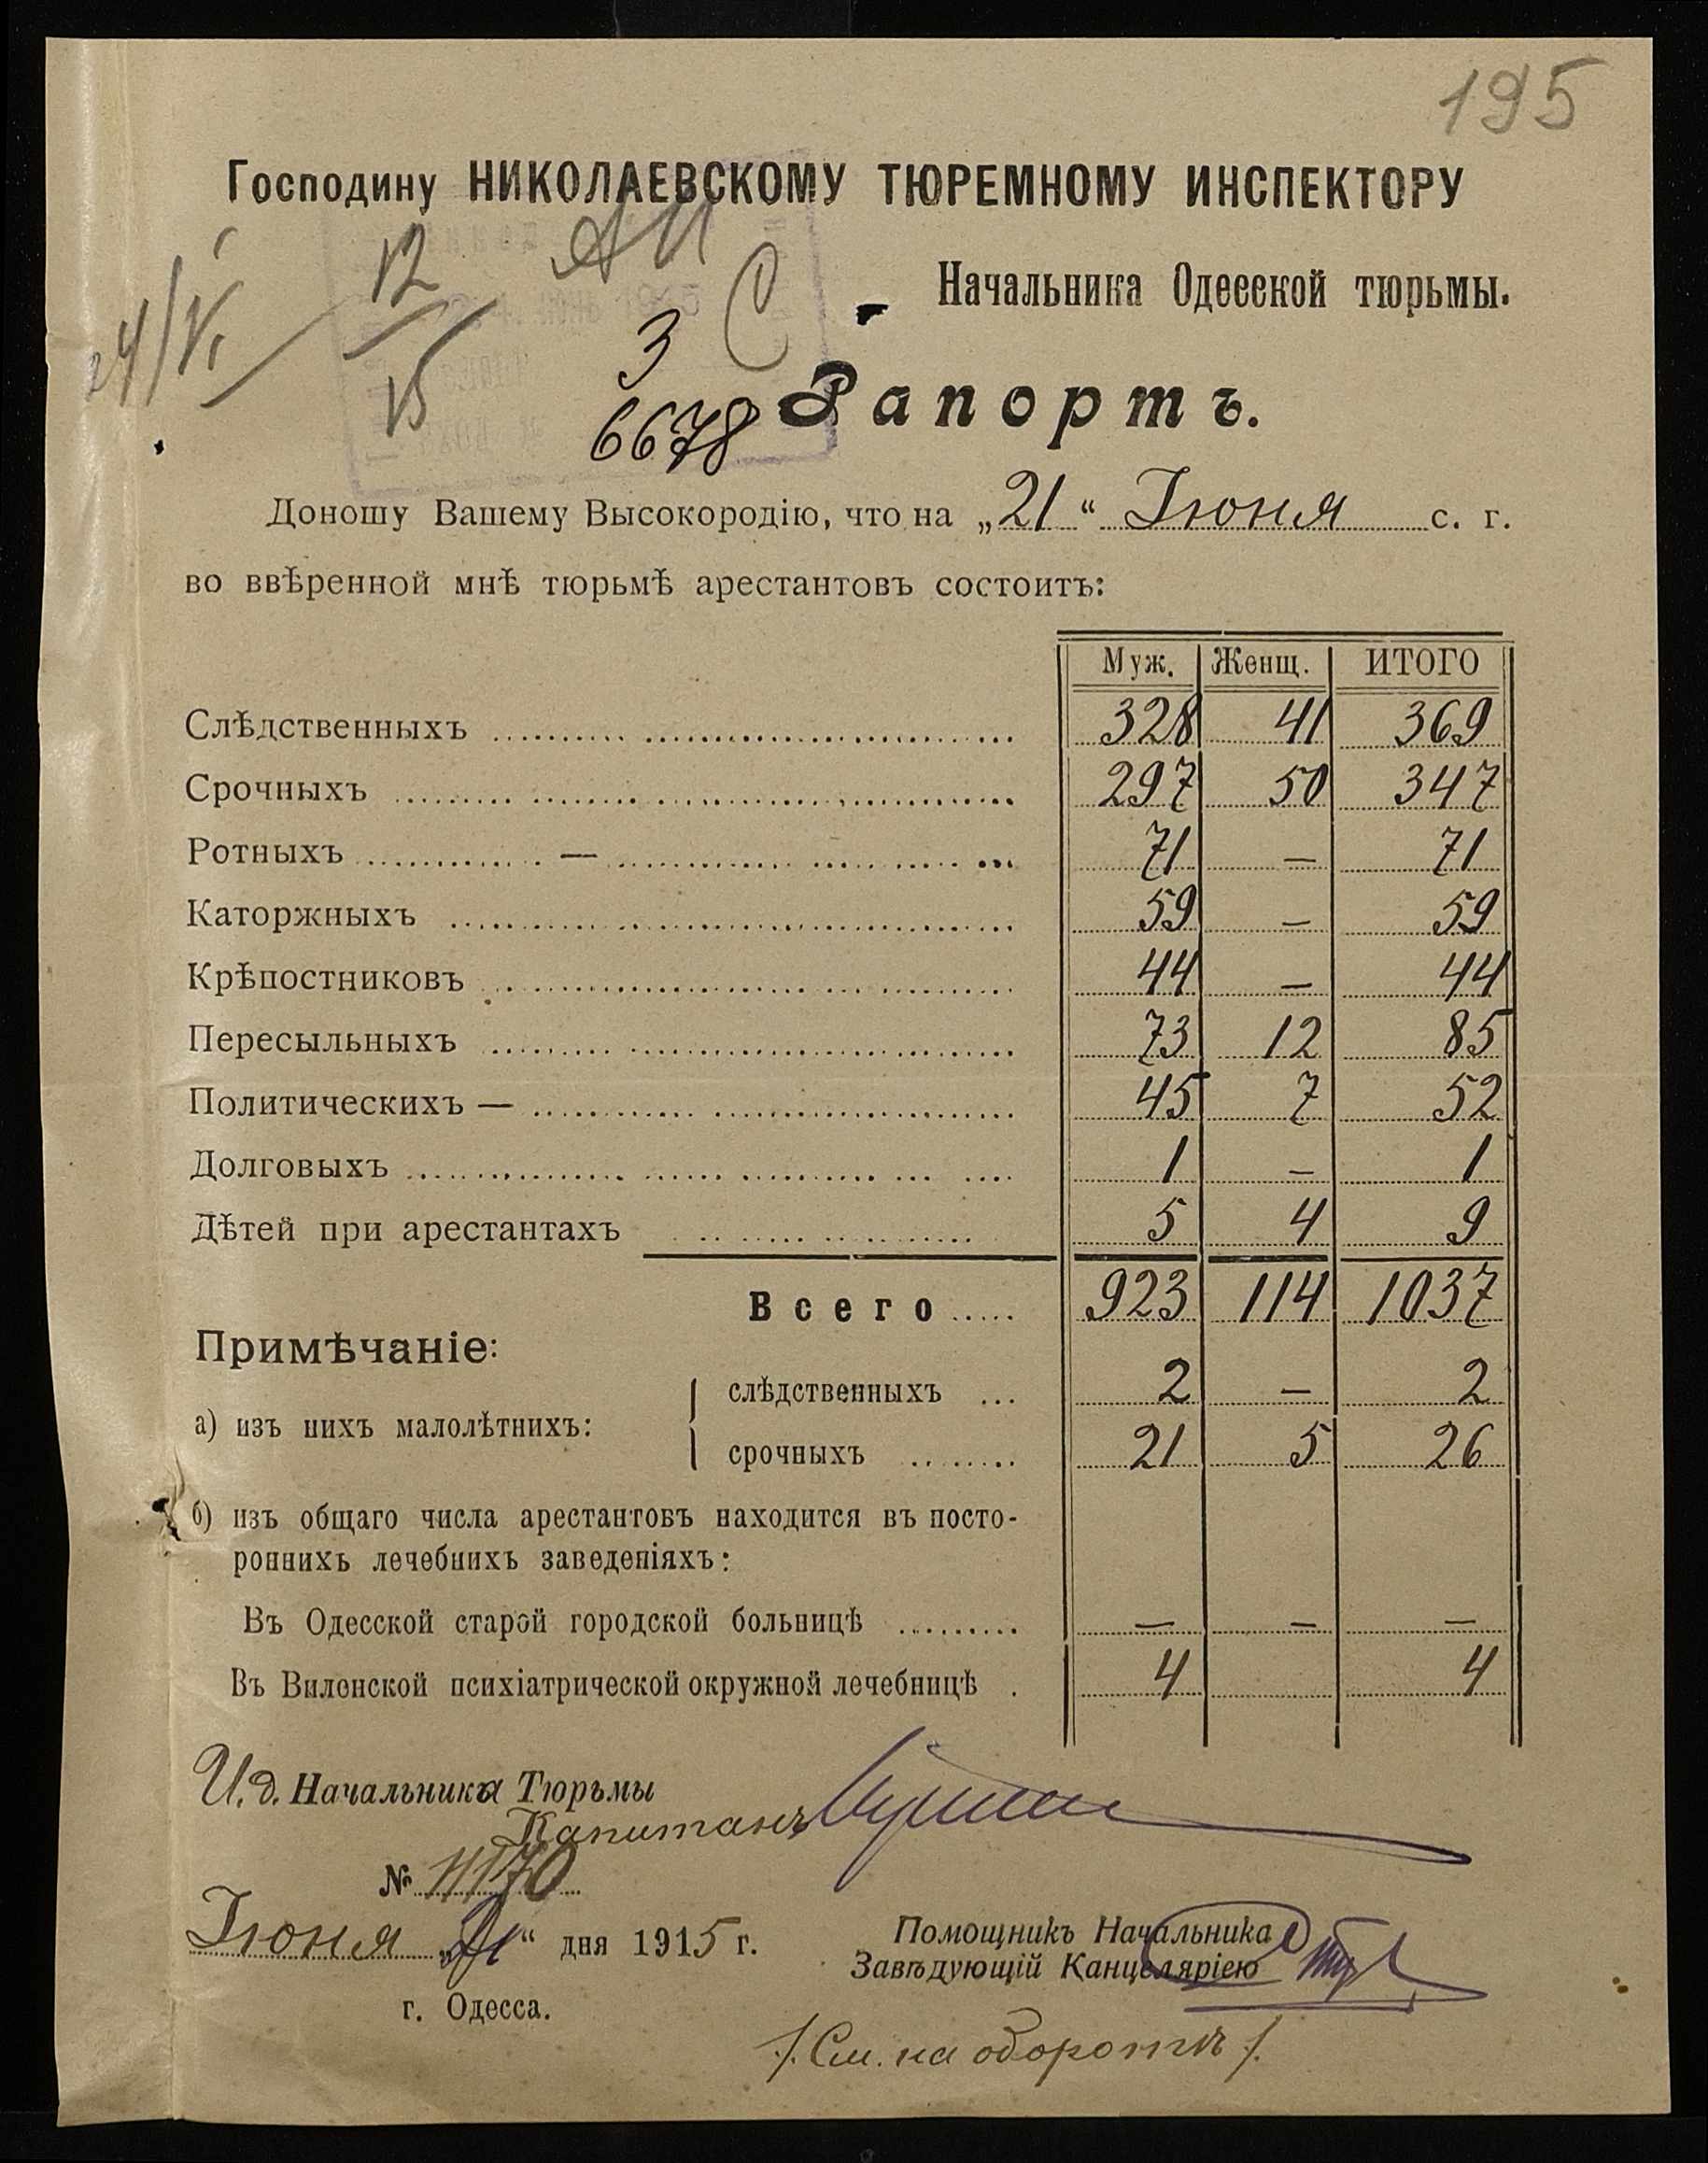 195
Господину НИКОЛАЕВСКОМУ ТЮРЕМНОМУ ИНСПЕКТОРУ
Начальника Одесской тюрьмы.
24/VI
12
15
3
6678
Рапортъ.
Доношу Вашему Высокородію, что на „21“ Іюня с. г.
во ввѣренной мнѣ тюрьмѣ арестантовъ состоитъ:
Муж. Женщ. ИТОГО
Слѣдственныхъ 328 41 369
Срочныхъ 297 50 347
Ротныхъ — 71 — 71
Каторжныхъ 59 — 59
Крѣпостниковъ 44 — 44
Пересыльныхъ 73 12 85
Политическихъ — 45 7 52
Долговыхъ 1 — 1
Дѣтей при арестантахъ 5 4 9
Всего 923 114 1037
Примѣчаніе:
а) изъ нихъ малолѣтнихъ: слѣдственныхъ 2 — 2
срочныхъ 21 5 26
б) изъ общаго числа арестантовъ находится въ посто-
роннихъ лечебнихъ заведеніяхъ:
Въ Одесской старой городской больницѣ — — —
Въ Виленской психіатрической окружной лечебницѣ 4 4
И. д. Начальника Тюрьмы
Капитанъ
№ 11170
Іюня „21“ дня 1915 г.
г. Одесса.
Помощникъ Начальника
Завѣдующій Канцеляріею
/. См. на оборотѣ /.